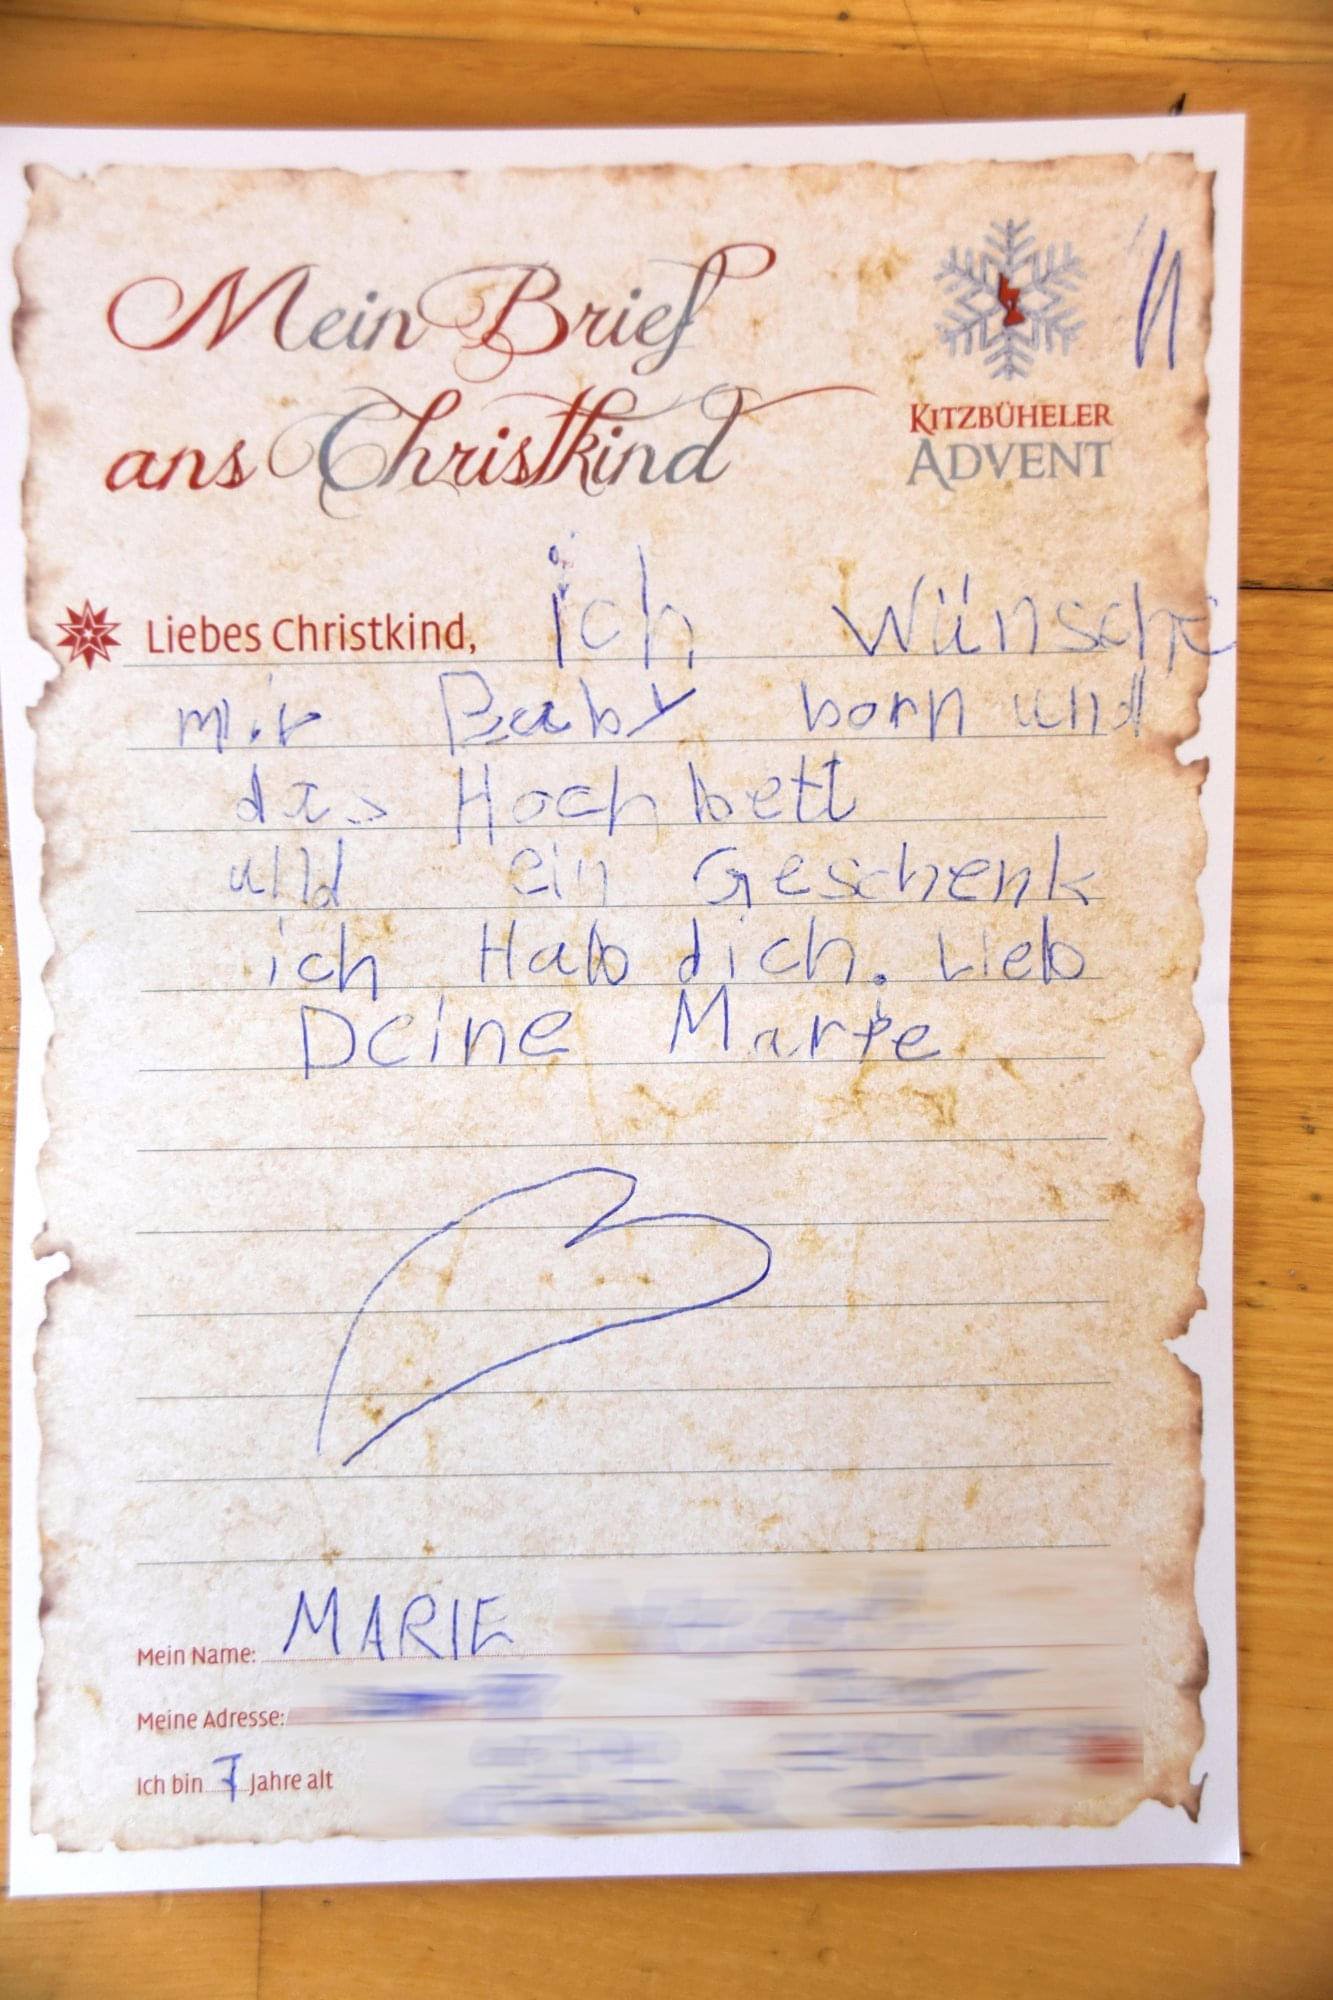 Mein Brief
ans Christkind
KITZBÜHELER
ADVENT
Liebes Christkind, ich Wünsche
mir Baby born und
das Hochbett
und ein Geschenk
ich Hab dich. Lieb
Deine Marie
Mein Name: MARIE
Meine Adresse:
Ich bin 7 Jahre alt